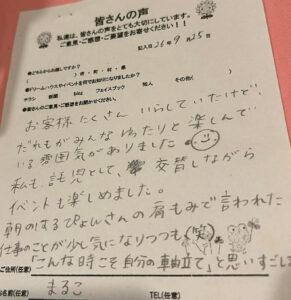 皆さんの声
私達は、皆さんの声をとても大切にしています。
ご意見・ご感想・ご要望をお寄せください！！
記入日 26年 9月 25日
●どちらからお越しですか？
( )市・町・村・県
●ドリームハウスやイベントを何でお知りになりましたか？
チラシ 新聞 blog フェイスブック 知人 その他( )
●皆さんのご意見・ご感想をお聞かせください。
お客様たくさんいらしていたけど、
だれもがみんなゆったりと楽しんで
いる雰囲気がありました
私も、託児として、交替しながら
イベントも楽しめました。
朝のはるぴょんさんの肩もみで言われた
仕事のことが少し気になりつつも、(笑)
「こんな時こそ自分の軸立て」と思いすごし
ご住所(任意)
お名前(任意) まるこ TEL(任意)